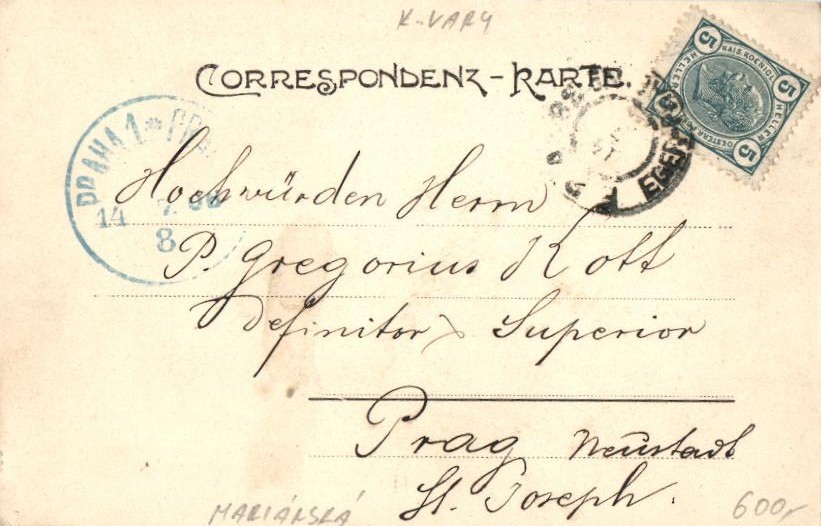 K-VARY
CORRESPONDENZ-KARTE.
5 KAIS. KOENIGL. 5
HELLER HELLER
5 OESTERR. POST 5
EGER
PRAHA 1 * PRA
14 7
8
Hochwürden Herrn
P. Gregorius Kott
Definitor & Superior
Prag Neustadt
St. Joseph.
MARIÁNSKÁ 600,-